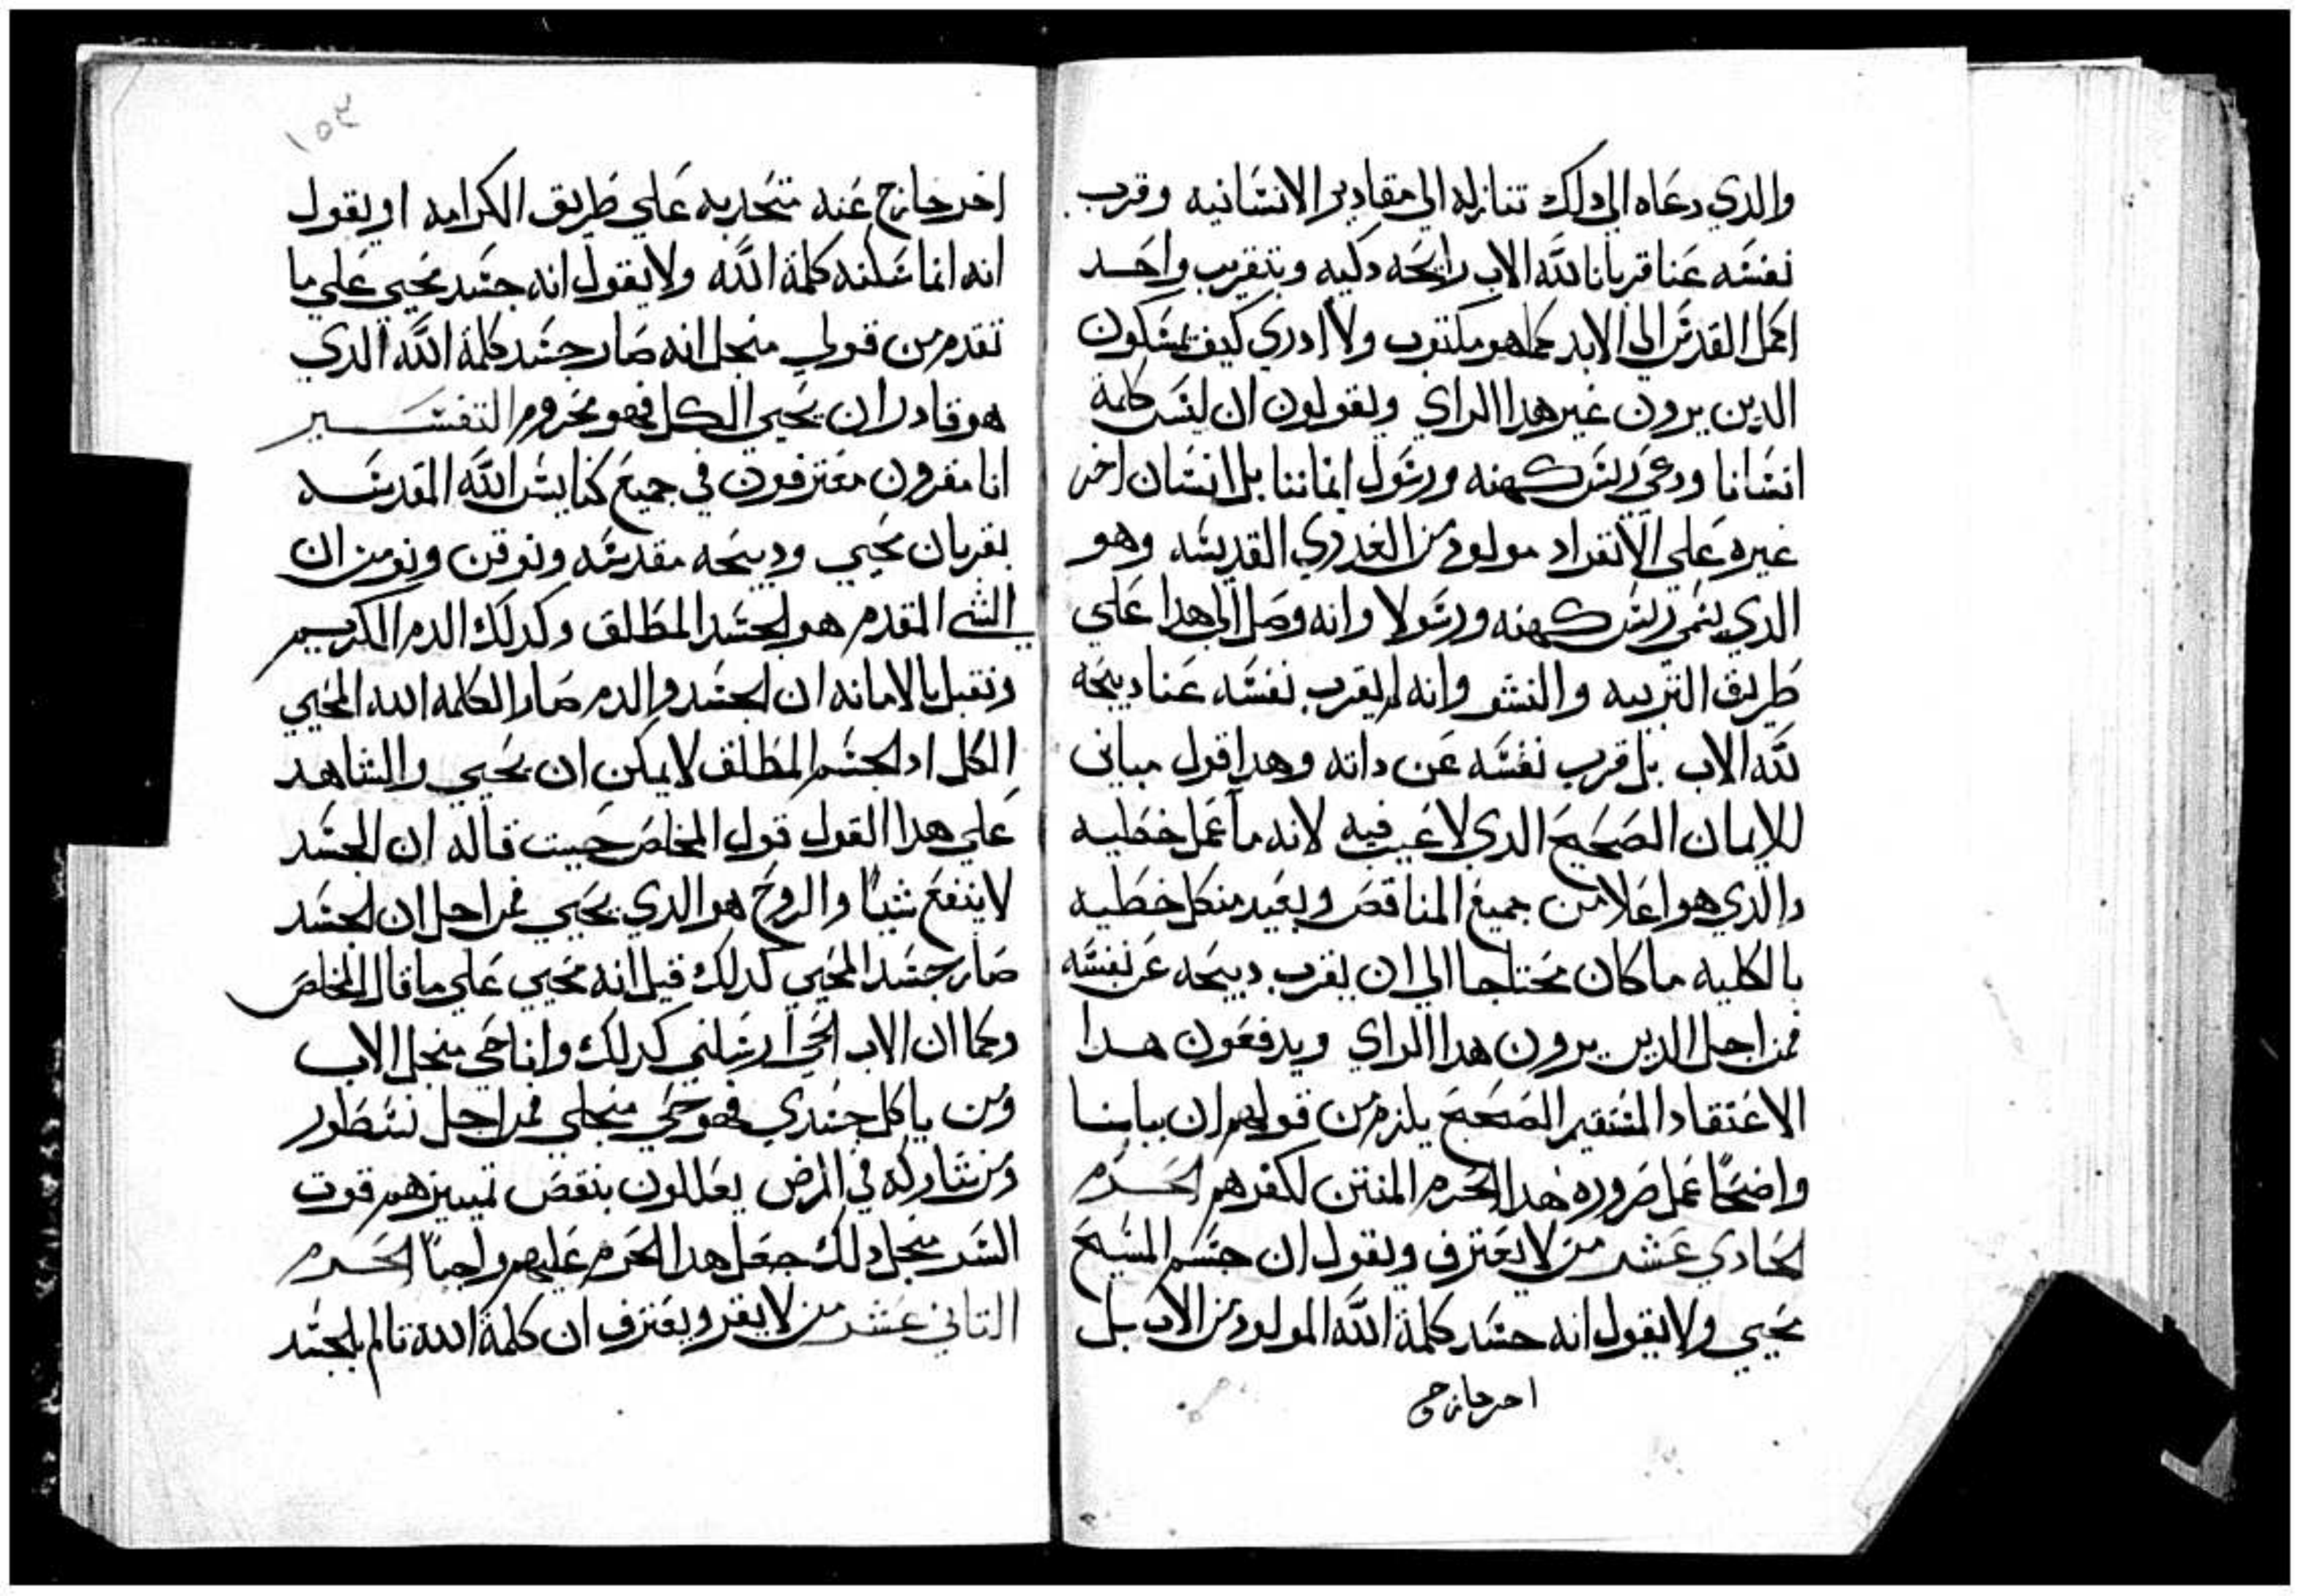 والدي دعاه الي دلك تنازله الي مقادير الانسانيه وقرب
نفسه عنا قربانا لله الاب رايحه دكيه وبتقريب واحد
اكمل القدس الي الابد كما هو مكتوب ولا ادري كيف يمسكون
الدين يرون غير هدا الراي ويقولون ان ليس كلمة
انسانا ودعي ريس كهنه ورسول ايماننا بل انسان اخر
غيره علي الانفراد مولود من العدري القديسه وهو
الدي يسمي ريس كهنه ورسولا وانه وصل الي هدا علي
طريق التربيه والنشو وانه لم يقرب نفسه عنا دبيحه
لله الاب بل قرب نفسه عن داته وهدا قول مباين
للايمان الصحيح الدي لا عيب فيه لانه ما عمل خطيه
والدي هو اعلا من جميع المناقص وبعيد من كل خطيه
بالكليه ما كان محتاجا الي ان يقرب دبيحه عن نفسه
فمن اجل الدين يرون هدا الراي ويدفعون هدا
الاعتقاد المستقيم الصحيح يلزم من قولهم ان بيانا
واضحا عمل ضروره هدا الحرم المنتن لكفرهم الحرم
الحادي عشر من لا يعترف ويقول ان جسم المسيح
محيي ولا يقول انه جسد كلمة الله المولود من الاب بل
اخر خارج
١٥٢
اخر خارج عنه متحد به علي طريق الكرامه او يقول
انه انما سكنه كلمة الله ولا يقول انه جسد محيي علي ما
تقدم من قولي منجل انه صار جسد كلمة الله الدي
هو قادر ان يحيي الكل فهو محروم التفسير
انا مقرون معترفون في جميع كنايس الله المقدسه
بقربان محيي ودبيحه مقدسه ونوقن ونومن ان
الشي المقدم هو الجسد المطلق وكدلك الدم الكريم
ونقبل بالامانه ان الجسد والدم صار الكلمه الله المحيي
الكل اد الجسم المطلق لا يمكن ان يحيي والشاهد
علي هدا القول قول المخلص حيت قاله ان الجسد
لا ينفع شيًا والروح هو الدي يحيي فمن اجل ان الجسد
صار جسد المحيي كدلك قيل انه محيي علي ما قال المخلص
وكما ان الاب الحي ارسلني كدلك وانا حي منجل الاب
ومن ياكل جسدي فهو حي منجلي فمن اجل نسطور
ومن شاركه في المرض يعللون بنقص تمييزهم قوت
السر منجل دلك جعل هدا الحرم عليهم واجبًا الحرم
التاني عشر من لا يقر ويعترف ان كلمة الله تالم بالجسد